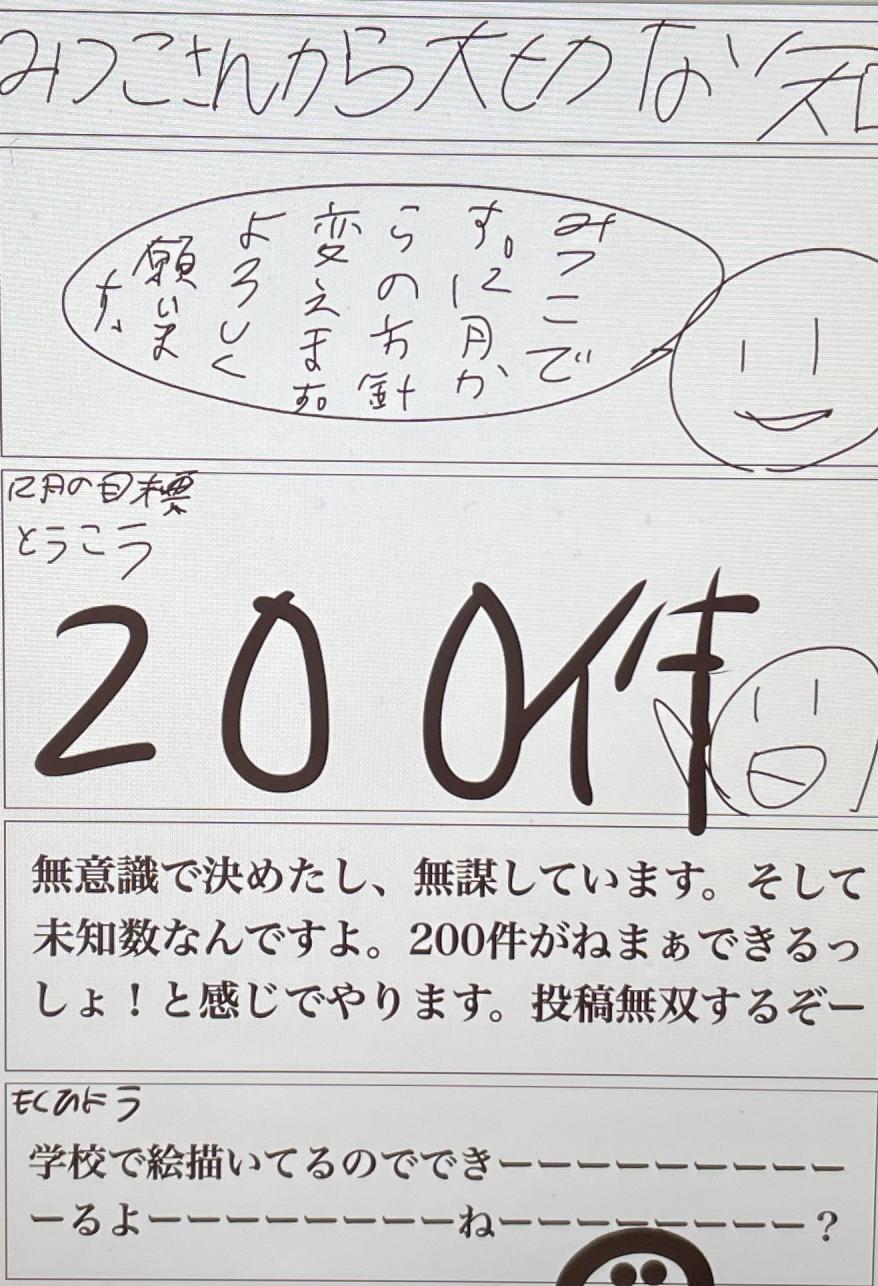 みつこさんから大切な知
みつこで
す。12月か
らの方針
変えます。
よろしく
願いま
す。
12月の目標
とうこう
200件
無意識で決めたし、無謀しています。そして
未知数なんですよ。200件がねまぁできるっ
しょ！と感じでやります。投稿無双するぞー
もくひょう
学校で絵描いてるのでできーーーーーーーーー
ーるよーーーーーーーーねーーーーーーーー？